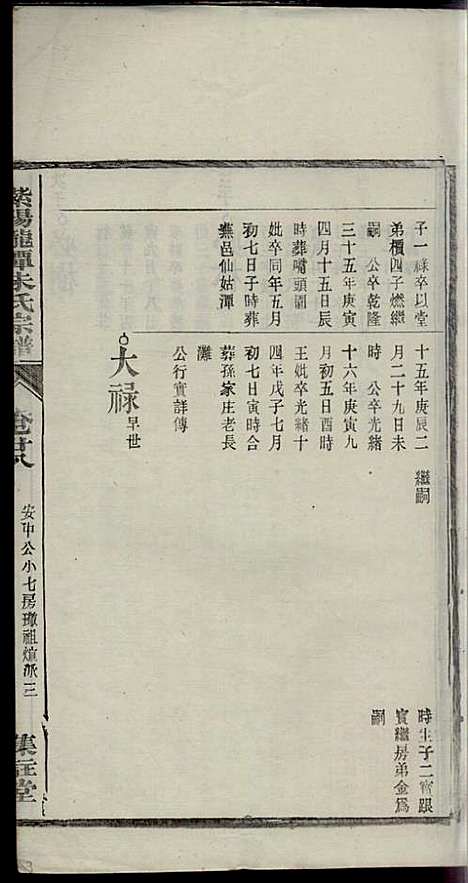 子一祿卒以堂
弟櫃四子燃繼
嗣　公卒乾隆
三十五年庚寅
四月十五日辰
時葬嘴頭園
妣卒同年五月
初七日子時葬
蕪邑仙姑潭
大祿早世
十五年庚辰二
月二十九日未
時　公卒光緒
十六年庚寅九
月初五日酉時
王妣卒光緒十
四年戊子七月
初七日寅時合
葬孫家庄老長
灘
公行實詳傳
繼嗣
時生子二實跟
實繼房弟金爲
嗣
紫陽龍潭朱氏宗譜
卷廿八
安中公小七房璥祖煊派三
集註堂